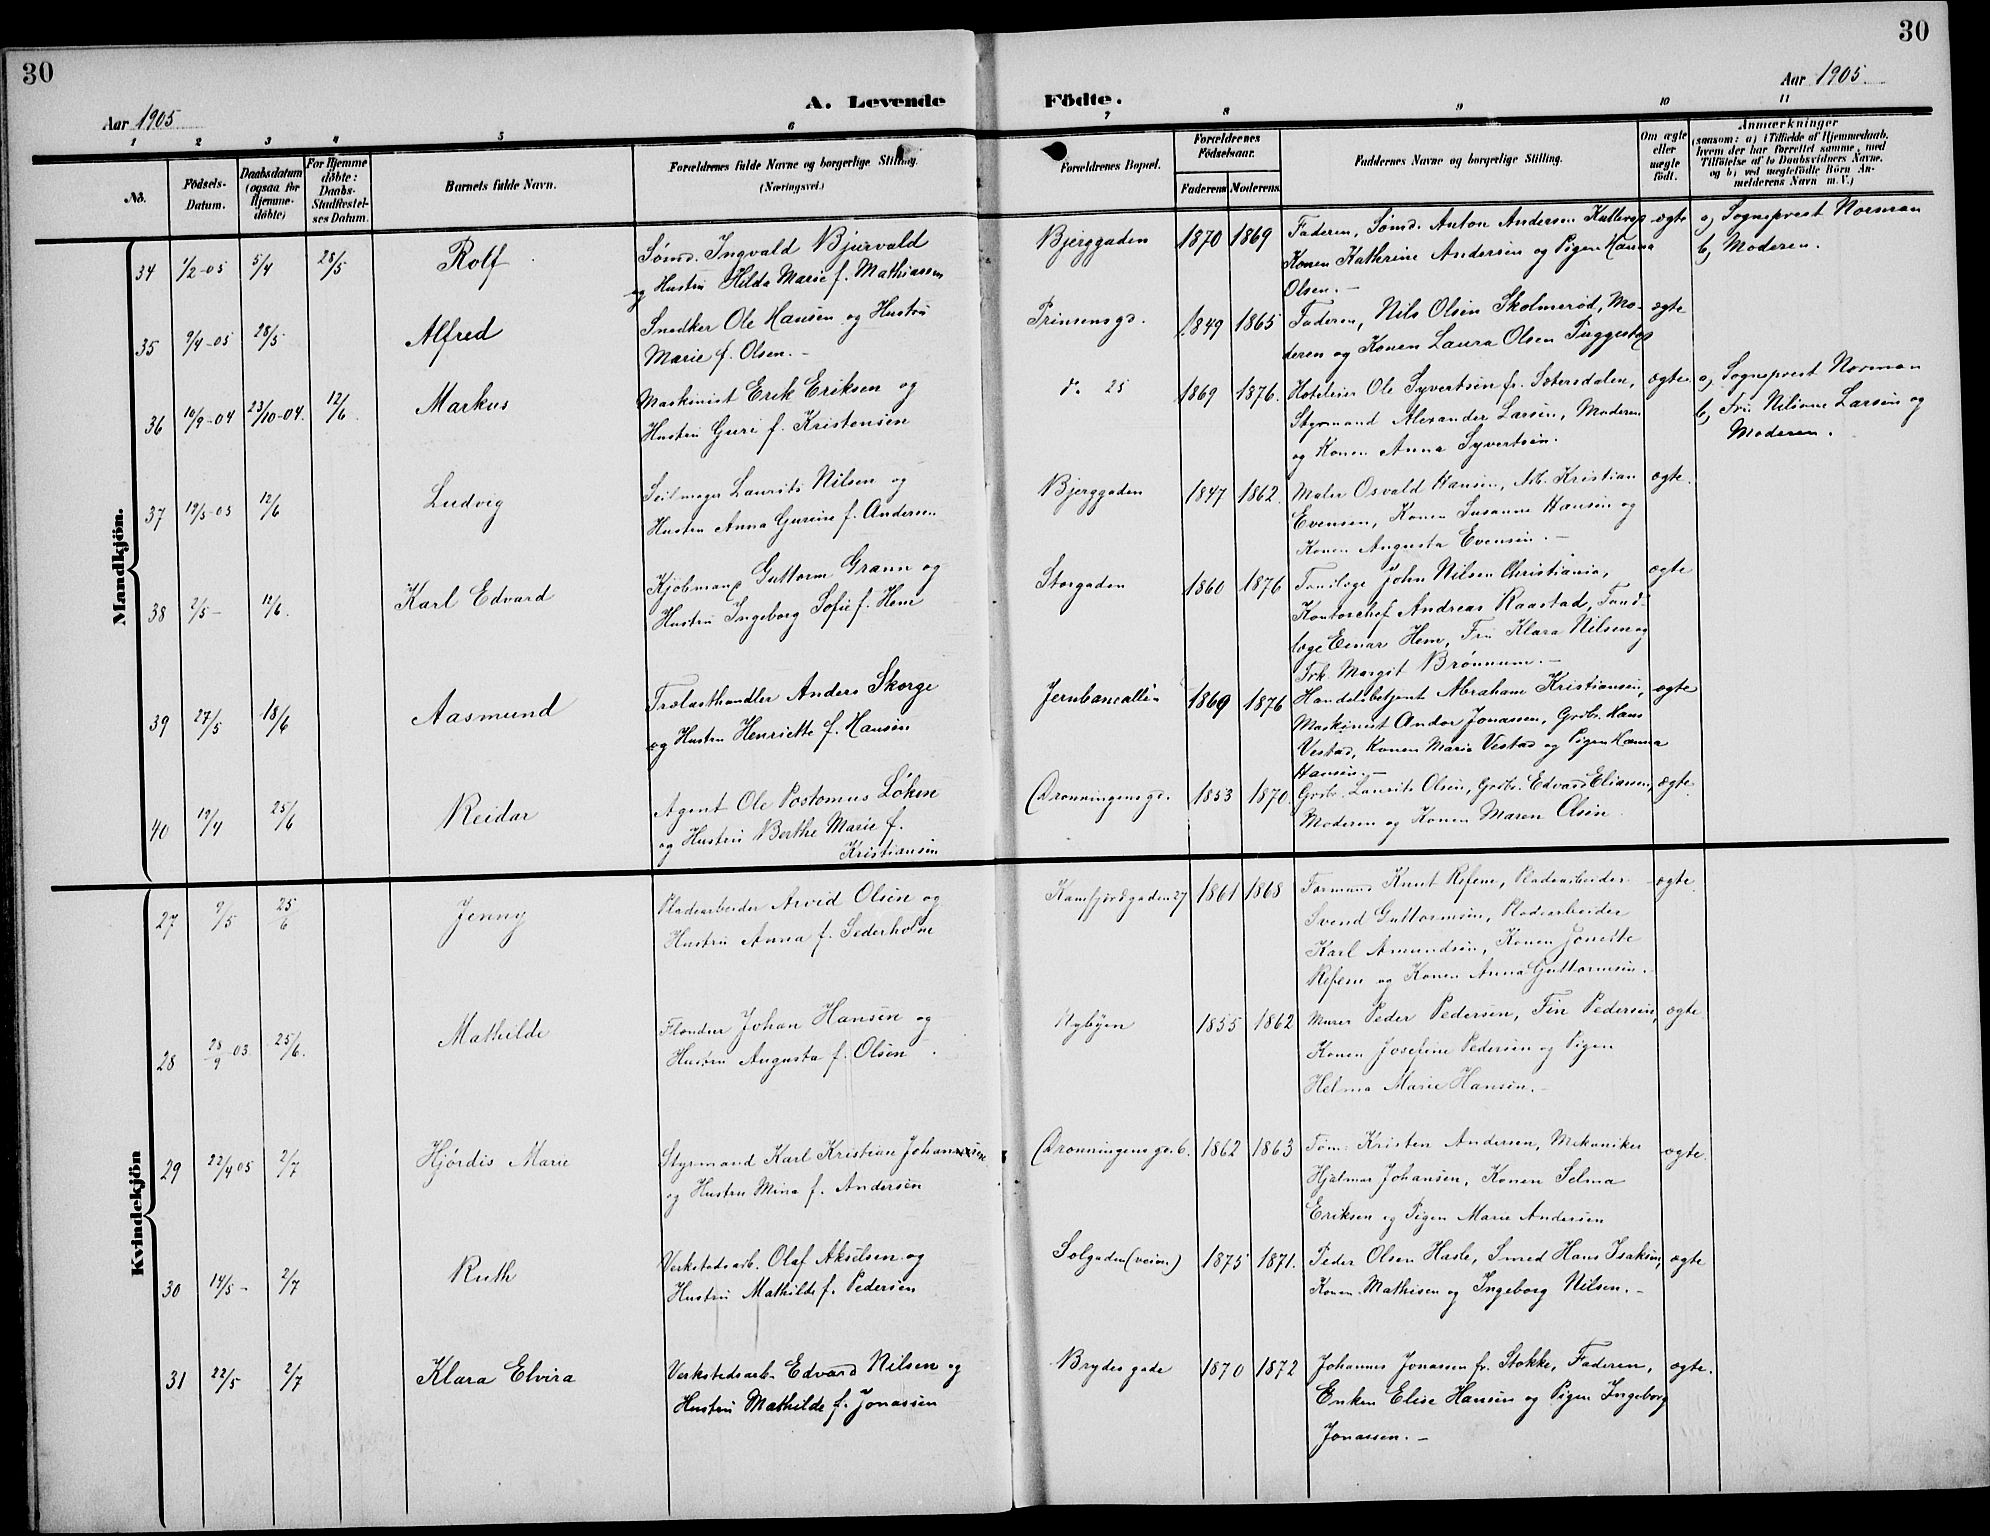 30
30
Aar 1905
A. Levende
Födte.
Aar 1905.
1 2 3 4 5 6 7 8 9 10 11
No.
Födsels-
Datum.
Daabsdatum
(ogsaa for
Hjemme-
döbte)
For Hjemme
döbte:
Daabs-
Stadfæstel-
ses Datum.
Barnets fulde Navn.
Forældrenes fulde Navne og borgerlige Stilling.
(Næringsvei.)
Forældrenes Bopæl.
Forældrenes
Födselsaar.
Faderens
Moderens
Faddernes Navne og borgerlige Stilling.
Om ægte
eller
uægte
födt.
Anmærkninger
(saasom: a) i Tilfælde af Hjemmedaab,
hvem der har forrettet samme, med
Tilföielse af to Daabsvidners Navne,
og b) ved uægtefödte Börn An-
melderens Navn m. V.)
Mandkjön.
34 1/2-05 5/4 28/5 Rolf
Sømd. Ingvald Bjurvald
og Hustru Hilda Marie f. Mathiassen
Bjerggaden 1870 1869
Faderen, Sømd. Anton Andersen
Konen Kathrine Andersen og Pigen Hanna
Olsen. -
ægte
a, Sogneprest Norman
b, Moderen.
35 9/4-05 28/5 Alfred
Snedker Ole Hansen og Hustru
Marie f. Olsen. -
Prinsensgd. 1849 1865
Faderen, Nils Olsen Skolmerød, Mo-
deren og Konen Laura Olsen
ægte
36 10/9-04 23/10-04. 12/6 Markus
Maskinist Erik Eriksen og
Hustru Guri f. Kristensen
do 25 1869 1876.
Hoteleier Ole Syvertsen fr. Sætersdalen,
Styrmand Alexander Larsen, Moderen
og Konen Anna Syvertsen.
ægte
a, Sogneprest Norman
b, Fru Larsen og
Moderen.
37 19/5-05 12/6 Ludvig
Seilmager Laurits Nilsen og
Hustru Anna Gurine f. Andersen
Bjerggaden 1847 1862.
Maler Osvald Hansen, Kristian
Evensen, Konen Susanne Hansen og
Konen Augusta Evensen. -
ægte.
38 2/5- 12/6. Karl Edvard
Kjøbmand Guttorm Grann og
Hustru Ingeborg Sofie f. Hem
Storgaden 1860 1876
Tandlæge John Nilsen Christiania,
Kontorchef Andreas Raastad, Tand-
læge Einar Hem, Fru Klara Nilsen og
Frk. Margit Brønnum. -
ægte
39 27/5 18/6 Aasmund
Trælasthandler Anders Skorge
og Hustru Henriette f. Hansen
Jernbanealleen 1869 1876
Handelsbetjent Abraham Kristiansen,
Maskinist Andor Jonassen, Grdbr. Hans
Vestad, Konen Marie Vestad og Pigen Hanna
Hansen. -
ægte
40 19/4 25/6 Reidar
Agent Ole Postomus Løken
og Hustru Berthe Marie f.
Kristiansen
Dronningensgd. 1853 1870.
Grdbr. Laurits Olsen, Grdbr. Edvard Eliassen,
Moderen og Konen Maren Olsen.
ægte.
Kvindekjön
27 9/5 25/6 Jenny
Pladearbeider Arvid Olsen og
Hustru Anna f. Sederholm
Kamfjordgaden 27 1861 1868
Formand Knut Refem, Pladearbeider
Svend Guttormsen, Pladearbeider
Karl Amundsen, Konen Jonette
Refem og Konen Anna Guttormsen.
ægte.
28 28/9 03 25/6. Mathilde
Johan Hansen og
Hustru Augusta f. Olsen.
Nybyen 1855 1862
Murer Peder Pedersen, Fin Pedersen,
Konen Josefine Pedersen og Pigen
Helma Marie Hansen. -
ægte
29 22/4 05 2/7 Hjørdis Marie
Styrmand Karl Kristian Johannesen
og Hustru Mina f. Andersen
Dronningensgd. 6. 1862 1863
Tøm. Kristen Andersen, Mekaniker
Hjalmar Johansen, Konen Selma
Eriksen og Pigen Marie Andersen
ægte.
30 14/5- 2/7 Ruth
Verkstedsarb. Olaf Akselsen og
Hustru Mathilde f. Pedersen
Solgaden (veien) 1875 1871.
Peder Olsen Hasle, Smed Hans Isaksen,
Konen Mathisen og Ingeborg Nilsen. -
ægte
31 22/5 2/7 Klara Elvira
Verkstedsarb. Edvard Nilsen og
Hustru Mathilde f. Jonassen
Brydes gade 1870 1872
Johannes Jonassen fr. Stokke, Faderen,
Enken Elise Hansen og Pigen Ingeborg
Jonassen. -
ægte.